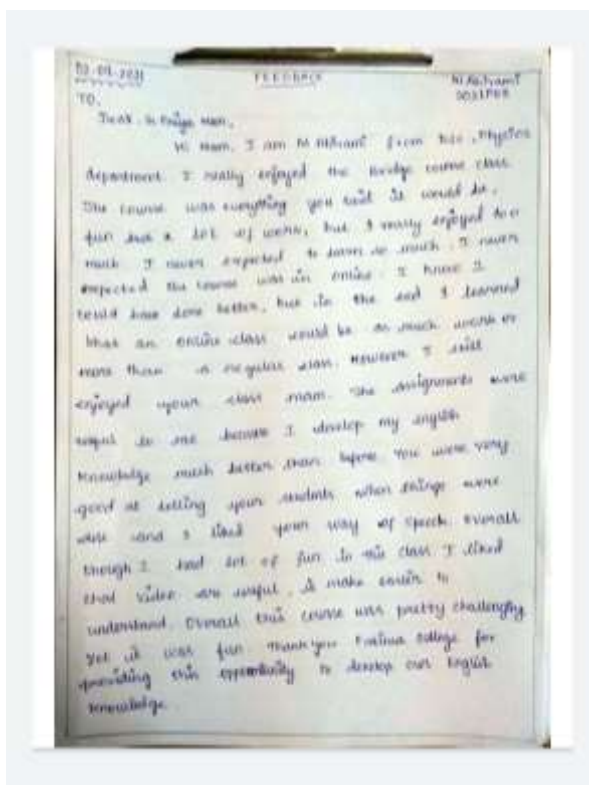 FEEDBACK
TO,
Mam,
Hi Mam, I am from BSc, Physics
department. I really enjoyed the Bridge course class.
The course was everything you said it would be,
fun but a lot of work, but I really enjoyed too
much. I never expected to learn so much. I never
expected the course was in online. I know I
could have done better, but in the end I learned
that an online class would be as much work or
more than a regular class. However I still
enjoyed your class mam. The assignments were
useful to me because I develop my english
knowledge much better than before. You were very
good at telling your students when things were
and I liked your way of speech. Overall
though I had lot of fun in this class. I liked
that video are useful, it make easier to
understand. Overall this course was pretty challenging
yet it was fun. Thank you Fatima College for
providing this opportunity to develop our English
knowledge.